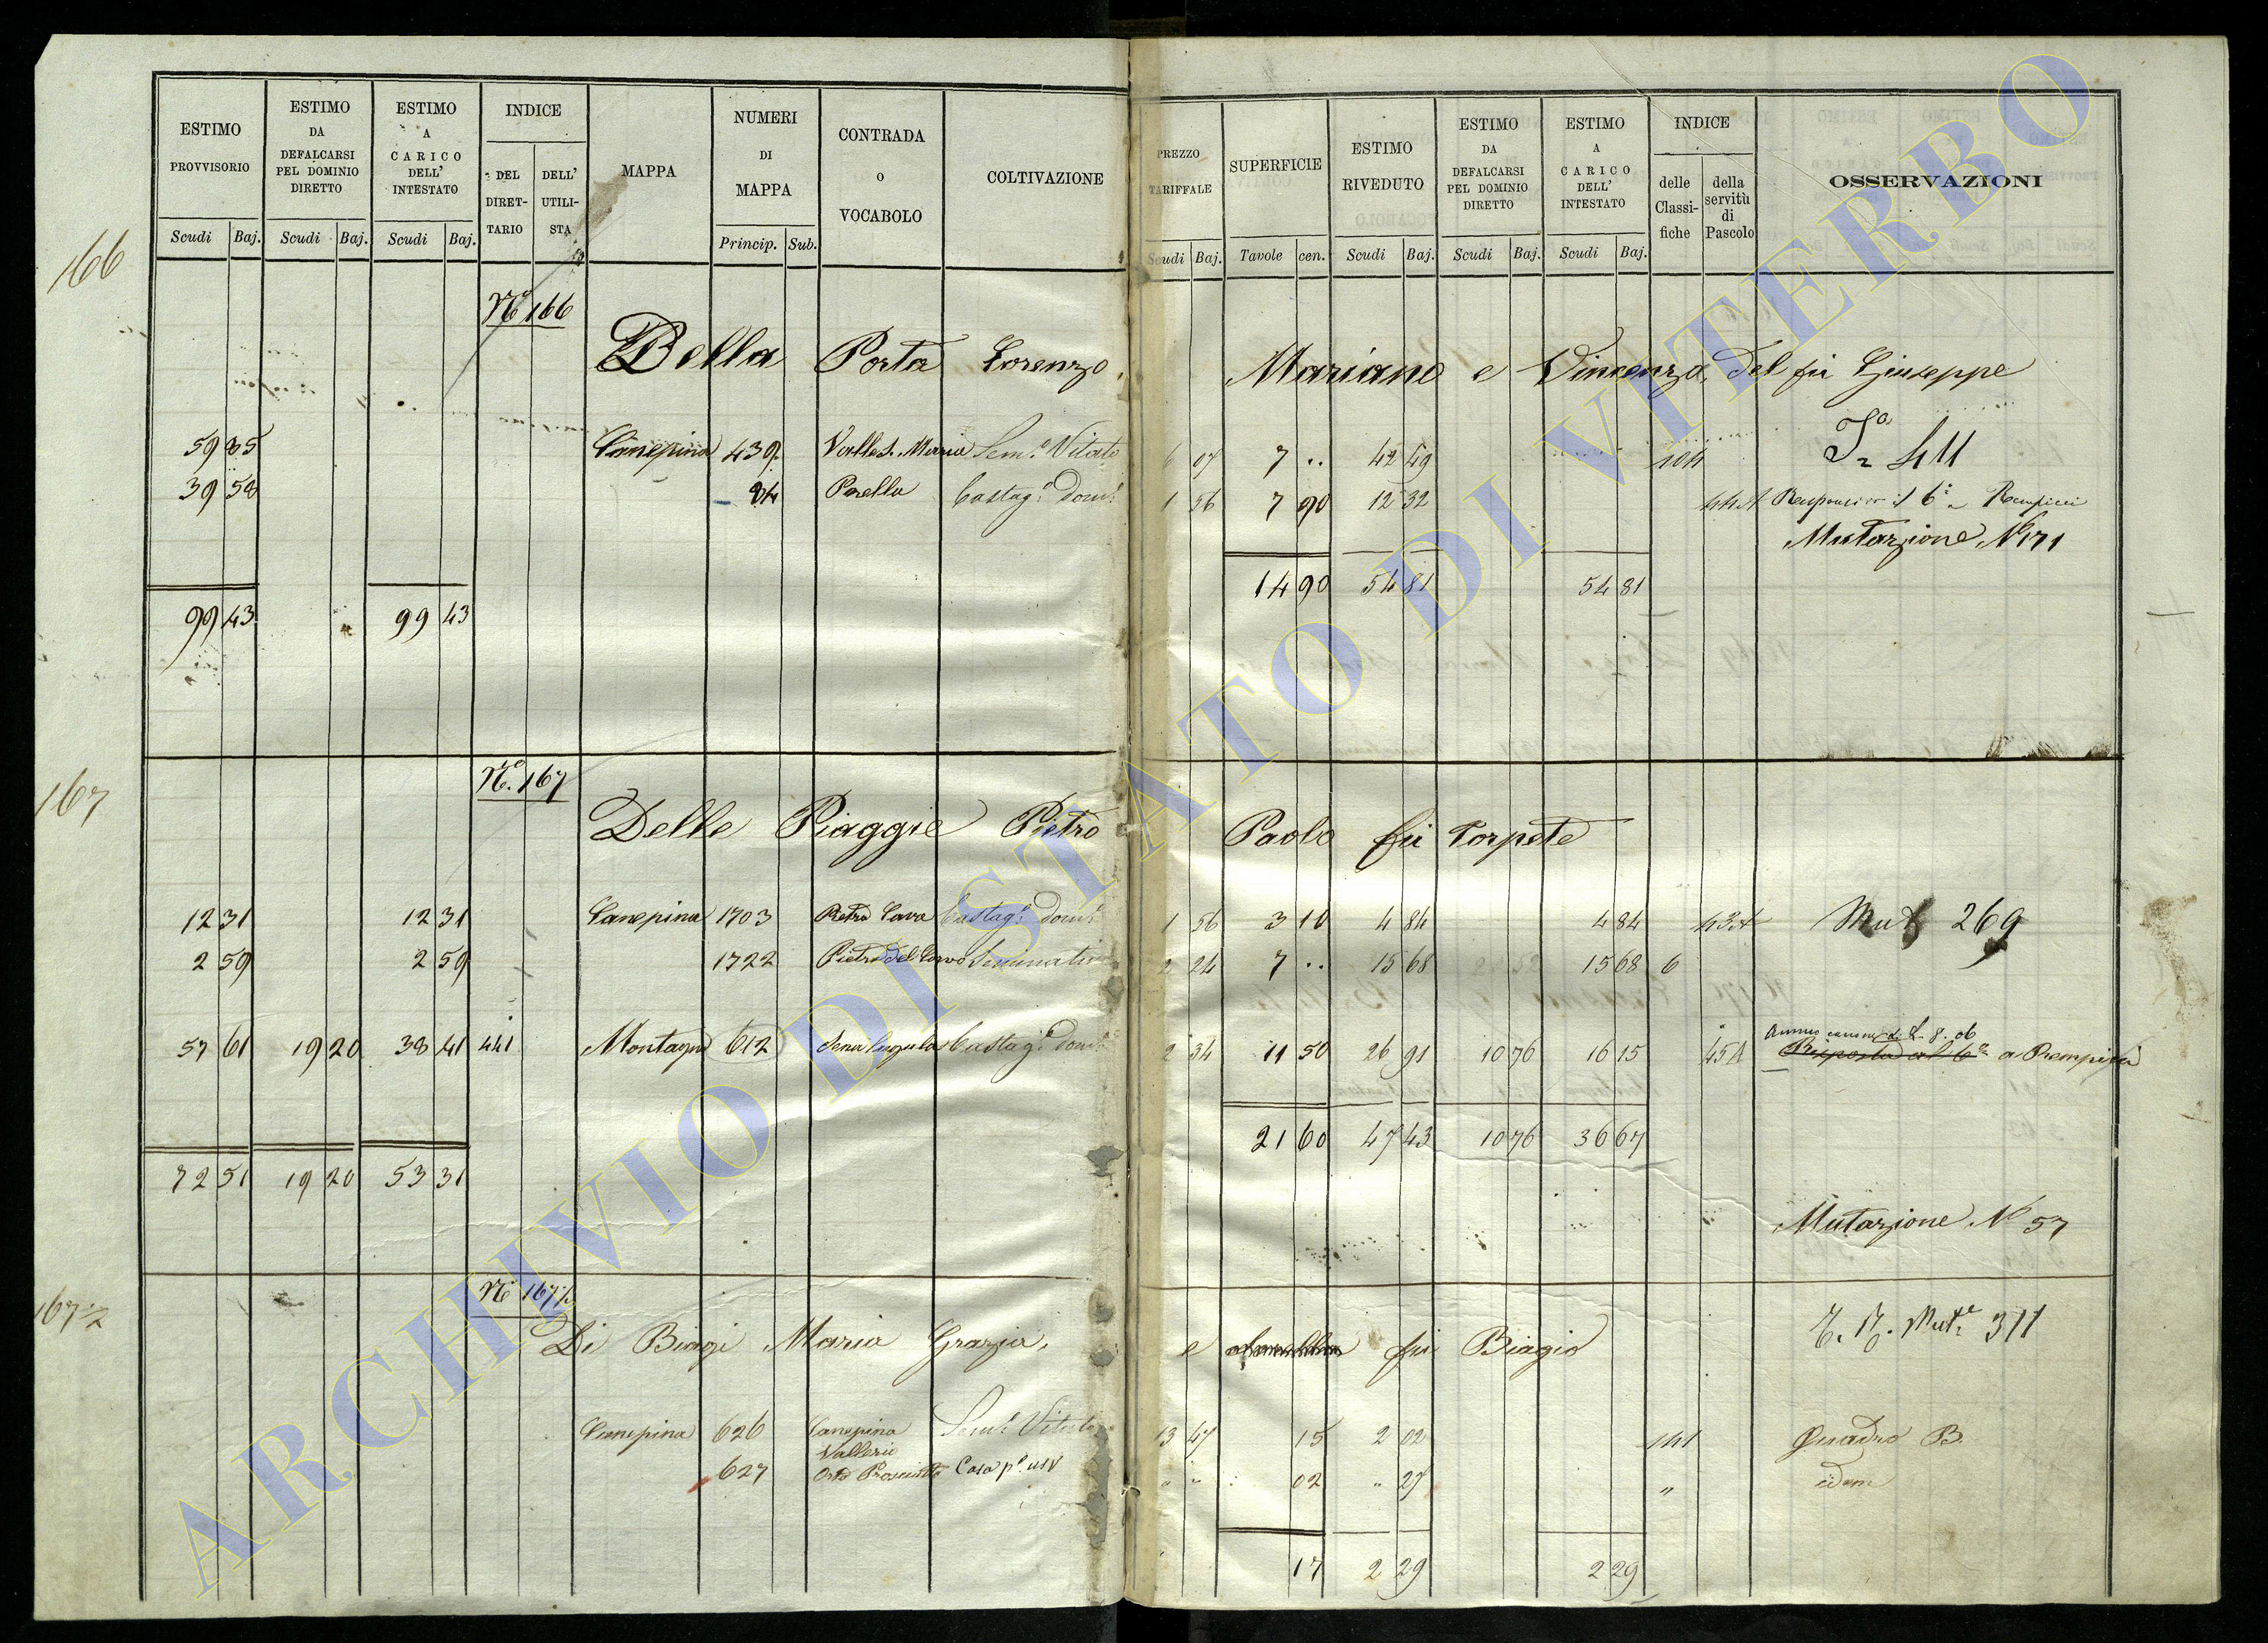 ESTIMO PROVVISORIO
ESTIMO DA DEFALCARSI PEL DOMINIO DIRETTO
ESTIMO A CARICO DELL' INTESTATO
INDICE
DEL DIRET-TARIO
DELL' UTILI-STA
MAPPA
NUMERI DI MAPPA
CONTRADA O VOCABOLO
COLTIVAZIONE
PREZZO TARIFFALE
SUPERFICIE
ESTIMO RIVEDUTO
ESTIMO DA DEFALCARSI PEL DOMINIO DIRETTO
ESTIMO A CARICO DELL' INTESTATO
INDICE
delle Classi-fiche
della servitù di Pascolo
OSSERVAZIONI
Scudi Baj. Scudi Baj. Scudi Baj. Princip. Sub. Scudi Baj. Tavole cen. Scudi Baj. Scudi Baj. Scudi Baj.
166
N° 166
Della Porta Lorenzo, Mariano e Vincenzo, del fu Giuseppe
59 85 Canepina 439 Valle S. Maria Sem.° Vitato 6 07 7 .. 42 49 104
39 58 84 Cast​ag.° dom.° 1 56 7 90 12 32 44A
Mutazione N° 171
14 90 54 81 54 81
99 43 99 43
167
N.° 167
Delle Piaggie Pietro Paolo fu Torpete
12 31 12 31 Canepina 1703 Pietro Cava Castag.° dom.° 1 56 3 10 4 84 4 84 43A Mut 269
2 59 2 59 1722 Pietro del Corvo Seminativo 2 24 7 .. 15 68 15 68 6
annuo canone di L. 8.06
57 61 19 20 38 41 441 Montagna 612 Castag.° dom.° 2 34 11 50 26 91 10 76 16 15 45A a Rempicci
21 60 47 43 10 76 36 67
72 51 19 20 53 31
Mutazione N° 57
167½
N° 167½
Di Biagi Maria Grazia, e fu Biagio
Mut.e 311
Canepina 626 Canepina Sem.° Vitato 13 47 15 2 02 141 Quadro B.
Vallerie
627 Orto Prosciutto Casa p.° uso " " 02 " 27 " idem
17 2 29 2 29
ARCHIVIO DI STATO DI VITERBO